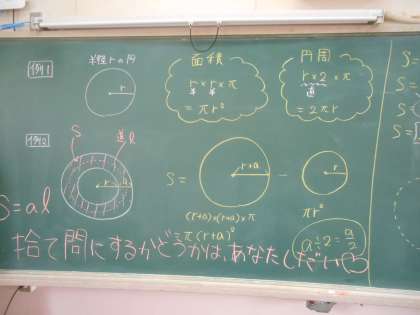 例1
半径rの円
r
面積
r×r×π
半 半
=πr²
円周
r×2×π
直
=2πr
例2
S
道l
r
a
S=
r+a
-
r
(r+a)×(r+a)×π
=π(r+a)²
πr²
a÷2=a/2
S=al
捨て問にするかどうかは、あなたしだい♡
S=
S=